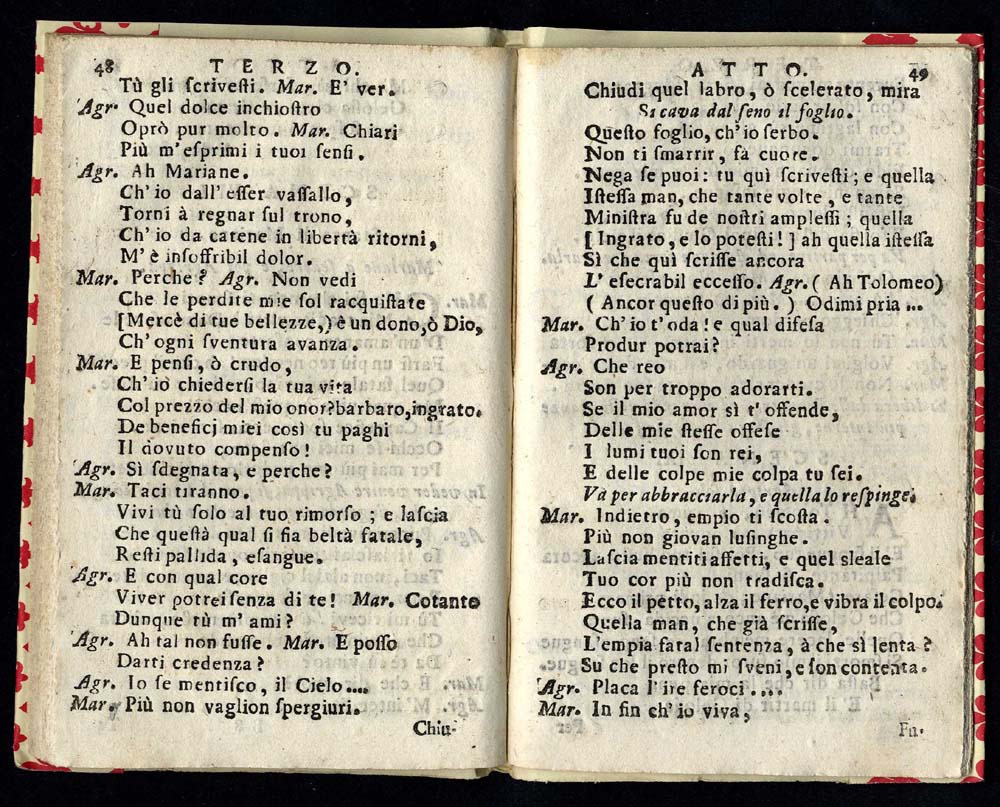 48 TERZO.
Tù gli ſcriveſti. Mar. E' ver.
Agr. Quel dolce inchioſtro
Oprò pur molto. Mar. Chiari
Più m'eſprimi i tuoi ſenſi.
Agr. Ah Mariane.
Ch'io dall'eſſer vaſſallo,
Torni à regnar ſul trono,
Ch'io da catene in libertà ritorni,
M'è inſoffribil dolor.
Mar. Perche? Agr. Non vedi
Che le perdite mie ſol racquiſtate
[Mercè di tue bellezze,) è un dono, ò Dio,
Ch'ogni ſventura avanza.
Mar. E penſi, ò crudo,
Ch'io chiederſi la tua vita
Col prezzo del mio onor? barbaro, ingrato.
De beneficj miei così tu paghi
Il dovuto compenſo!
Agr. Sì ſdegnata, e perche?
Mar. Taci tiranno.
Vivi tù ſolo al tuo rimorſo; e laſcia
Che queſtà qual ſi ſia beltà fatale,
Reſti pallida, eſangue.
Agr. E con qual core
Viver potrei ſenza di te! Mar. Cotanto
Dunque tù m'ami?
Agr. Ah tal non fuſſe. Mar. E poſſo
Darti credenza?
Agr. Io ſe mentiſco, il Cielo....
Mar. Più non vaglion ſpergiuri.
Chiu-
ATTO. 49
Chiudi quel labro, ò ſcelerato, mira
Si cava dal ſeno il foglio.
Queſto foglio, ch'io ſerbo.
Non ti ſmarrir, fà cuore.
Nega ſe puoi: tu quì ſcriveſti; e quella
Iſteſſa man, che tante volte, e tante
Miniſtra fu de noſtri ampleſſi; quella
[Ingrato, e lo poteſti!] ah quella iſteſſa
Sì che quì ſcriſſe ancora
L'eſecrabil ecceſſo. Agr. (Ah Tolomeo)
(Ancor queſto di più.) Odimi pria...
Mar. Ch'io t'oda! e qual difeſa
Produr potrai?
Agr. Che reo
Son per troppo adorarti.
Se il mio amor sì t'offende,
Delle mie ſteſſe offeſe
I lumi tuoi ſon rei,
E delle colpe mie colpa tu ſei.
Và per abbracciarla, e quella lo reſpinge.
Mar. Indietro, empio ti ſcoſta.
Più non giovan luſinghe.
Laſcia mentiti affetti, e quel sleale
Tuo cor più non tradiſca.
Ecco il petto, alza il ferro, e vibra il colpo.
Quella man, che già ſcriſſe,
L'empia fatal ſentenza, à che sì lenta?
Su che preſto mi ſveni, e ſon contenta.
Agr. Placa l'ire feroci....
Mar. In fin ch'io viva,
Fu-